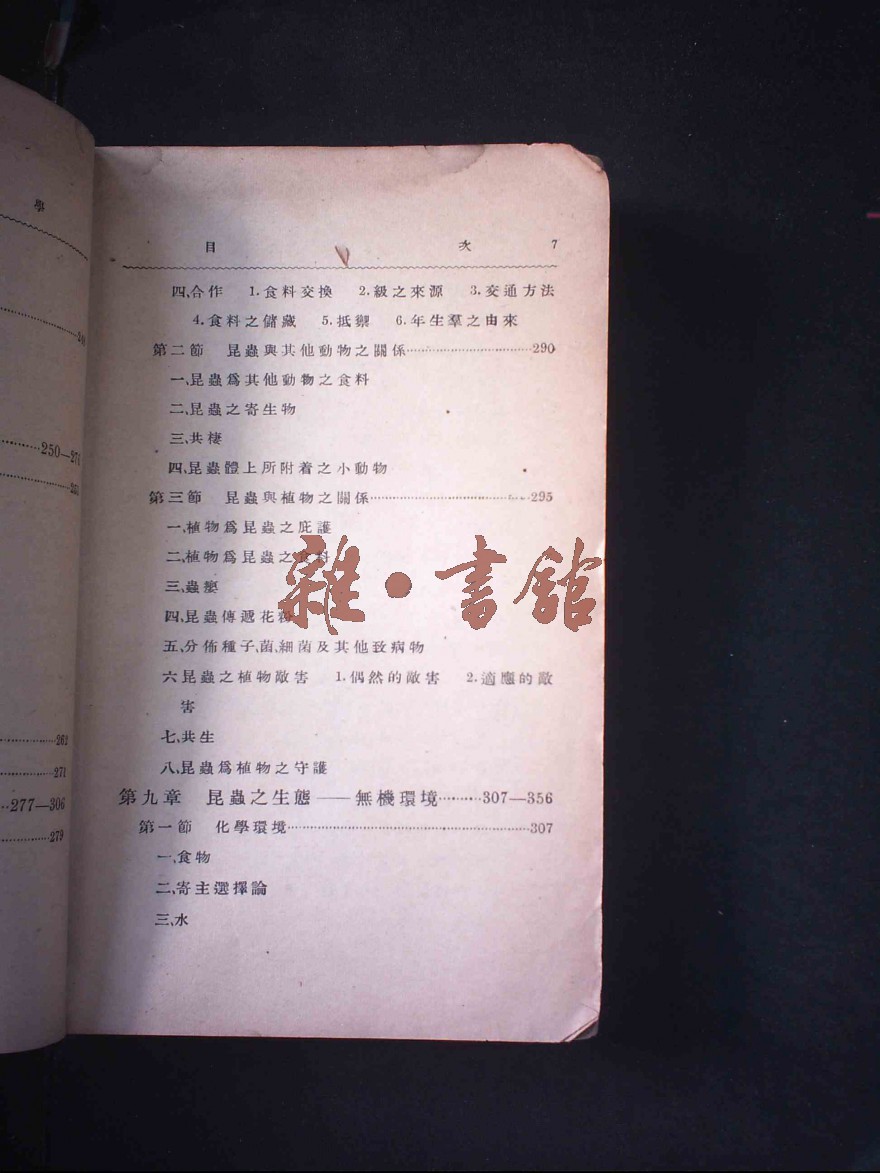 學
250—271
262
271
277—306
279
目 次 7
四、合作 1.食料交換 2.級之來源 3.交通方法
4.食料之儲藏 5.抵禦 6.年生羣之由來
第二節 昆蟲與其他動物之關係……290
一、昆蟲爲其他動物之食料
二、昆蟲之寄生物
三、共棲
四、昆蟲體上所附着之小動物
第三節 昆蟲與植物之關係……295
一、植物爲昆蟲之庇護
二、植物爲昆蟲之食料
三、蟲癭
四、昆蟲傳遞花粉
五、分佈種子、菌、細菌及其他致病物
六昆蟲之植物敵害 1.偶然的敵害 2.適應的敵
害
七、共生
八、昆蟲爲植物之守護
第九章 昆蟲之生態——無機環境……307—356
第一節 化學環境……307
一、食物
二、寄主選擇論
三、水
雜·書館